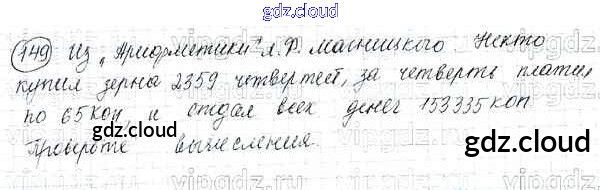 gdz.cloud
149 Из „Арифметики" Л.Ф. Магницкого Некто
купил зерна 2359 четвертей, за четверть платил
по 65 коп, и отдал всех денег 153335 коп
gdz.cloud
gdz.cloud
Проверьте вычесления.